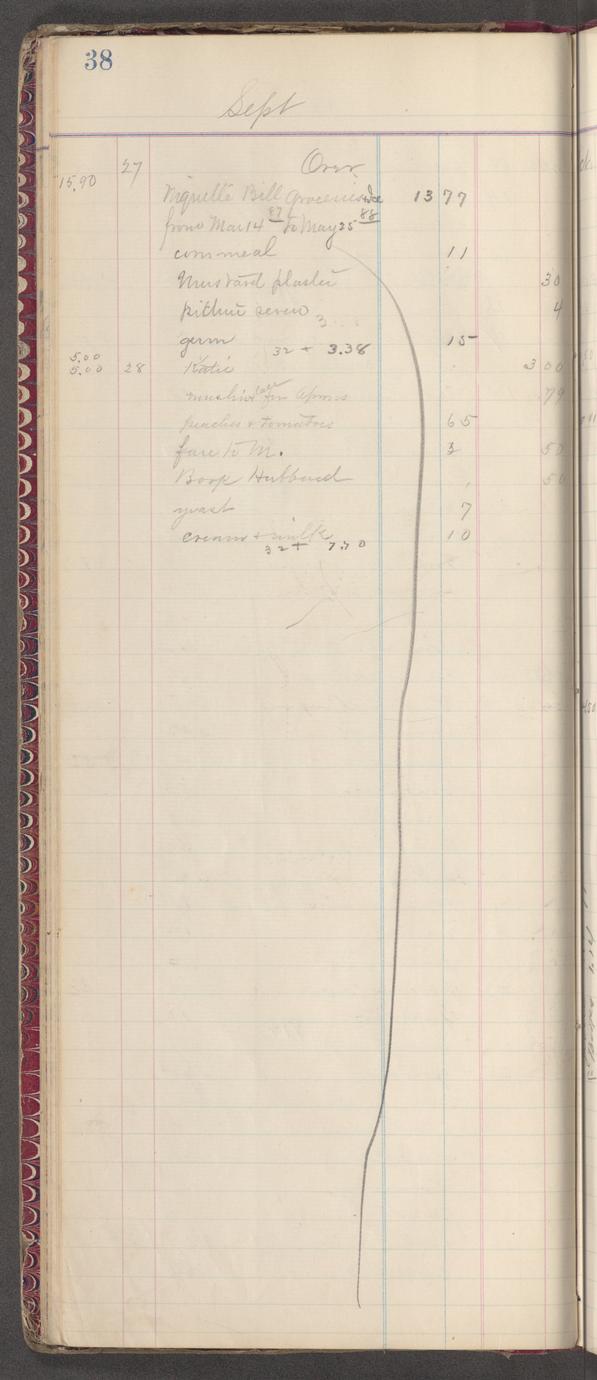 38
Sept
27 Over
15.90
Niquette Bill Groceries & Ice 13 77
from Mar 14 87 to May 25 88
cornmeal 11
Mustard plaster 30
picture screw 4
3
germ 15
32 + 3.38
5.00
5.00 28 Katie 3 00
muslin & lace for Aprons 79
peaches & tomatoes 65
fare to M. 3 50
Book Hubbard 50
yeast 7
cream & milk 10
32 + 7.70